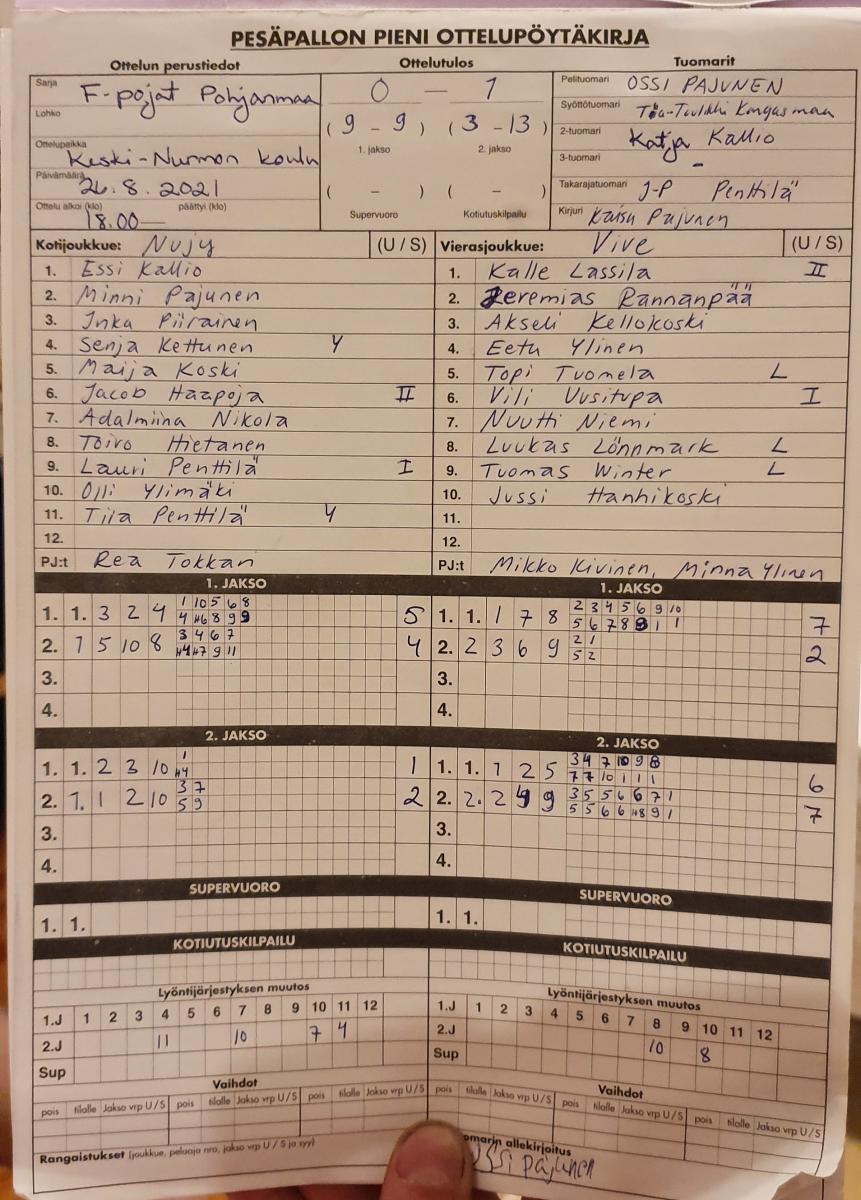 PESÄPALLON PIENI OTTELUPÖYTÄKIRJA
Ottelun perustiedot
Sarja F-pojat Pohjanmaa
Lohko
Ottelupaikka Keski-Nurmon koulu
Päivämäärä 26.8.2021
Ottelu alkoi (klo) päättyi (klo)
18.00—
Ottelutulos
0 — 1
(9 - 9) (3 - 13)
1. jakso 2. jakso
( - ) ( - )
Supervuoro Kotiutuskilpailu
Tuomarit
Pelituomari OSSI PAJUNEN
Syöttötuomari Tiia-Tuulikki Kangasmaa
2-tuomari Katja Kallio
3-tuomari -
Takarajatuomari J-P Penttilä
Kirjuri Kaisu Pajunen
Kotijoukkue: Nujy (U / S)
1. Essi Kallio
2. Minni Pajunen
3. Inka Piirainen
4. Senja Kettunen Y
5. Maija Koski
6. Jacob Haapoja II
7. Adalmiina Nikola
8. Toivo Hietanen
9. Lauri Penttilä I
10. Olli Ylimäki
11. Tiia Penttilä Y
12.
PJ:t Rea Tokkan
Vierasjoukkue: Vive (U / S)
1. Kalle Lassila II
2. Jeremias Rannanpää
3. Akseli Kellokoski
4. Eetu Ylinen
5. Topi Tuomela L
6. Vili Uusitupa I
7. Nuutti Niemi
8. Luukas Lönnmark L
9. Tuomas Winter L
10. Jussi Hanhikoski
11.
12.
PJ:t Mikko Kivinen, Minna Ylinen
1. JAKSO
1. 1. 3 2 4 1 10 5 6 8 5
4 H6 8 9 9
2. 1 5 10 8 3 4 6 7 4
H4 H7 9 11
3.
4.
1. JAKSO
1. 1. 1 7 8 2 3 4 5 6 9 10 7
5 6 7 8 9 1 1
2. 2 3 6 9 2 1 2
5 2
3.
4.
2. JAKSO
1. 1. 2 3 10 1 1
H4
2. 1. 1 2 10 3 7 2
5 9
3.
4.
2. JAKSO
1. 1. 1 2 5 3 4 7 10 9 8 6
7 7 10 1 1 1
2. 2. 2 9 9 3 5 5 6 6 7 1 7
5 5 6 6 H8 9 1
3.
4.
SUPERVUORO
1. 1.
SUPERVUORO
1. 1.
KOTIUTUSKILPAILU
KOTIUTUSKILPAILU
Lyöntijärjestyksen muutos
1.J 1 2 3 4 5 6 7 8 9 10 11 12
2.J 11 10 7 4
Sup
Lyöntijärjestyksen muutos
1.J 1 2 3 4 5 6 7 8 9 10 11 12
2.J 10 8
Sup
Vaihdot
pois tilalle Jakso vrp U/S pois tilalle Jakso vrp U/S pois tilalle Jakso vrp U/S
Vaihdot
pois tilalle Jakso vrp U/S pois tilalle Jakso vrp U/S pois tilalle Jakso vrp U/S
Rangaistukset (joukkue, pelaaja nro, jakso vrp U / S ja syy)
omarin allekirjoitus
Ossi Pajunen